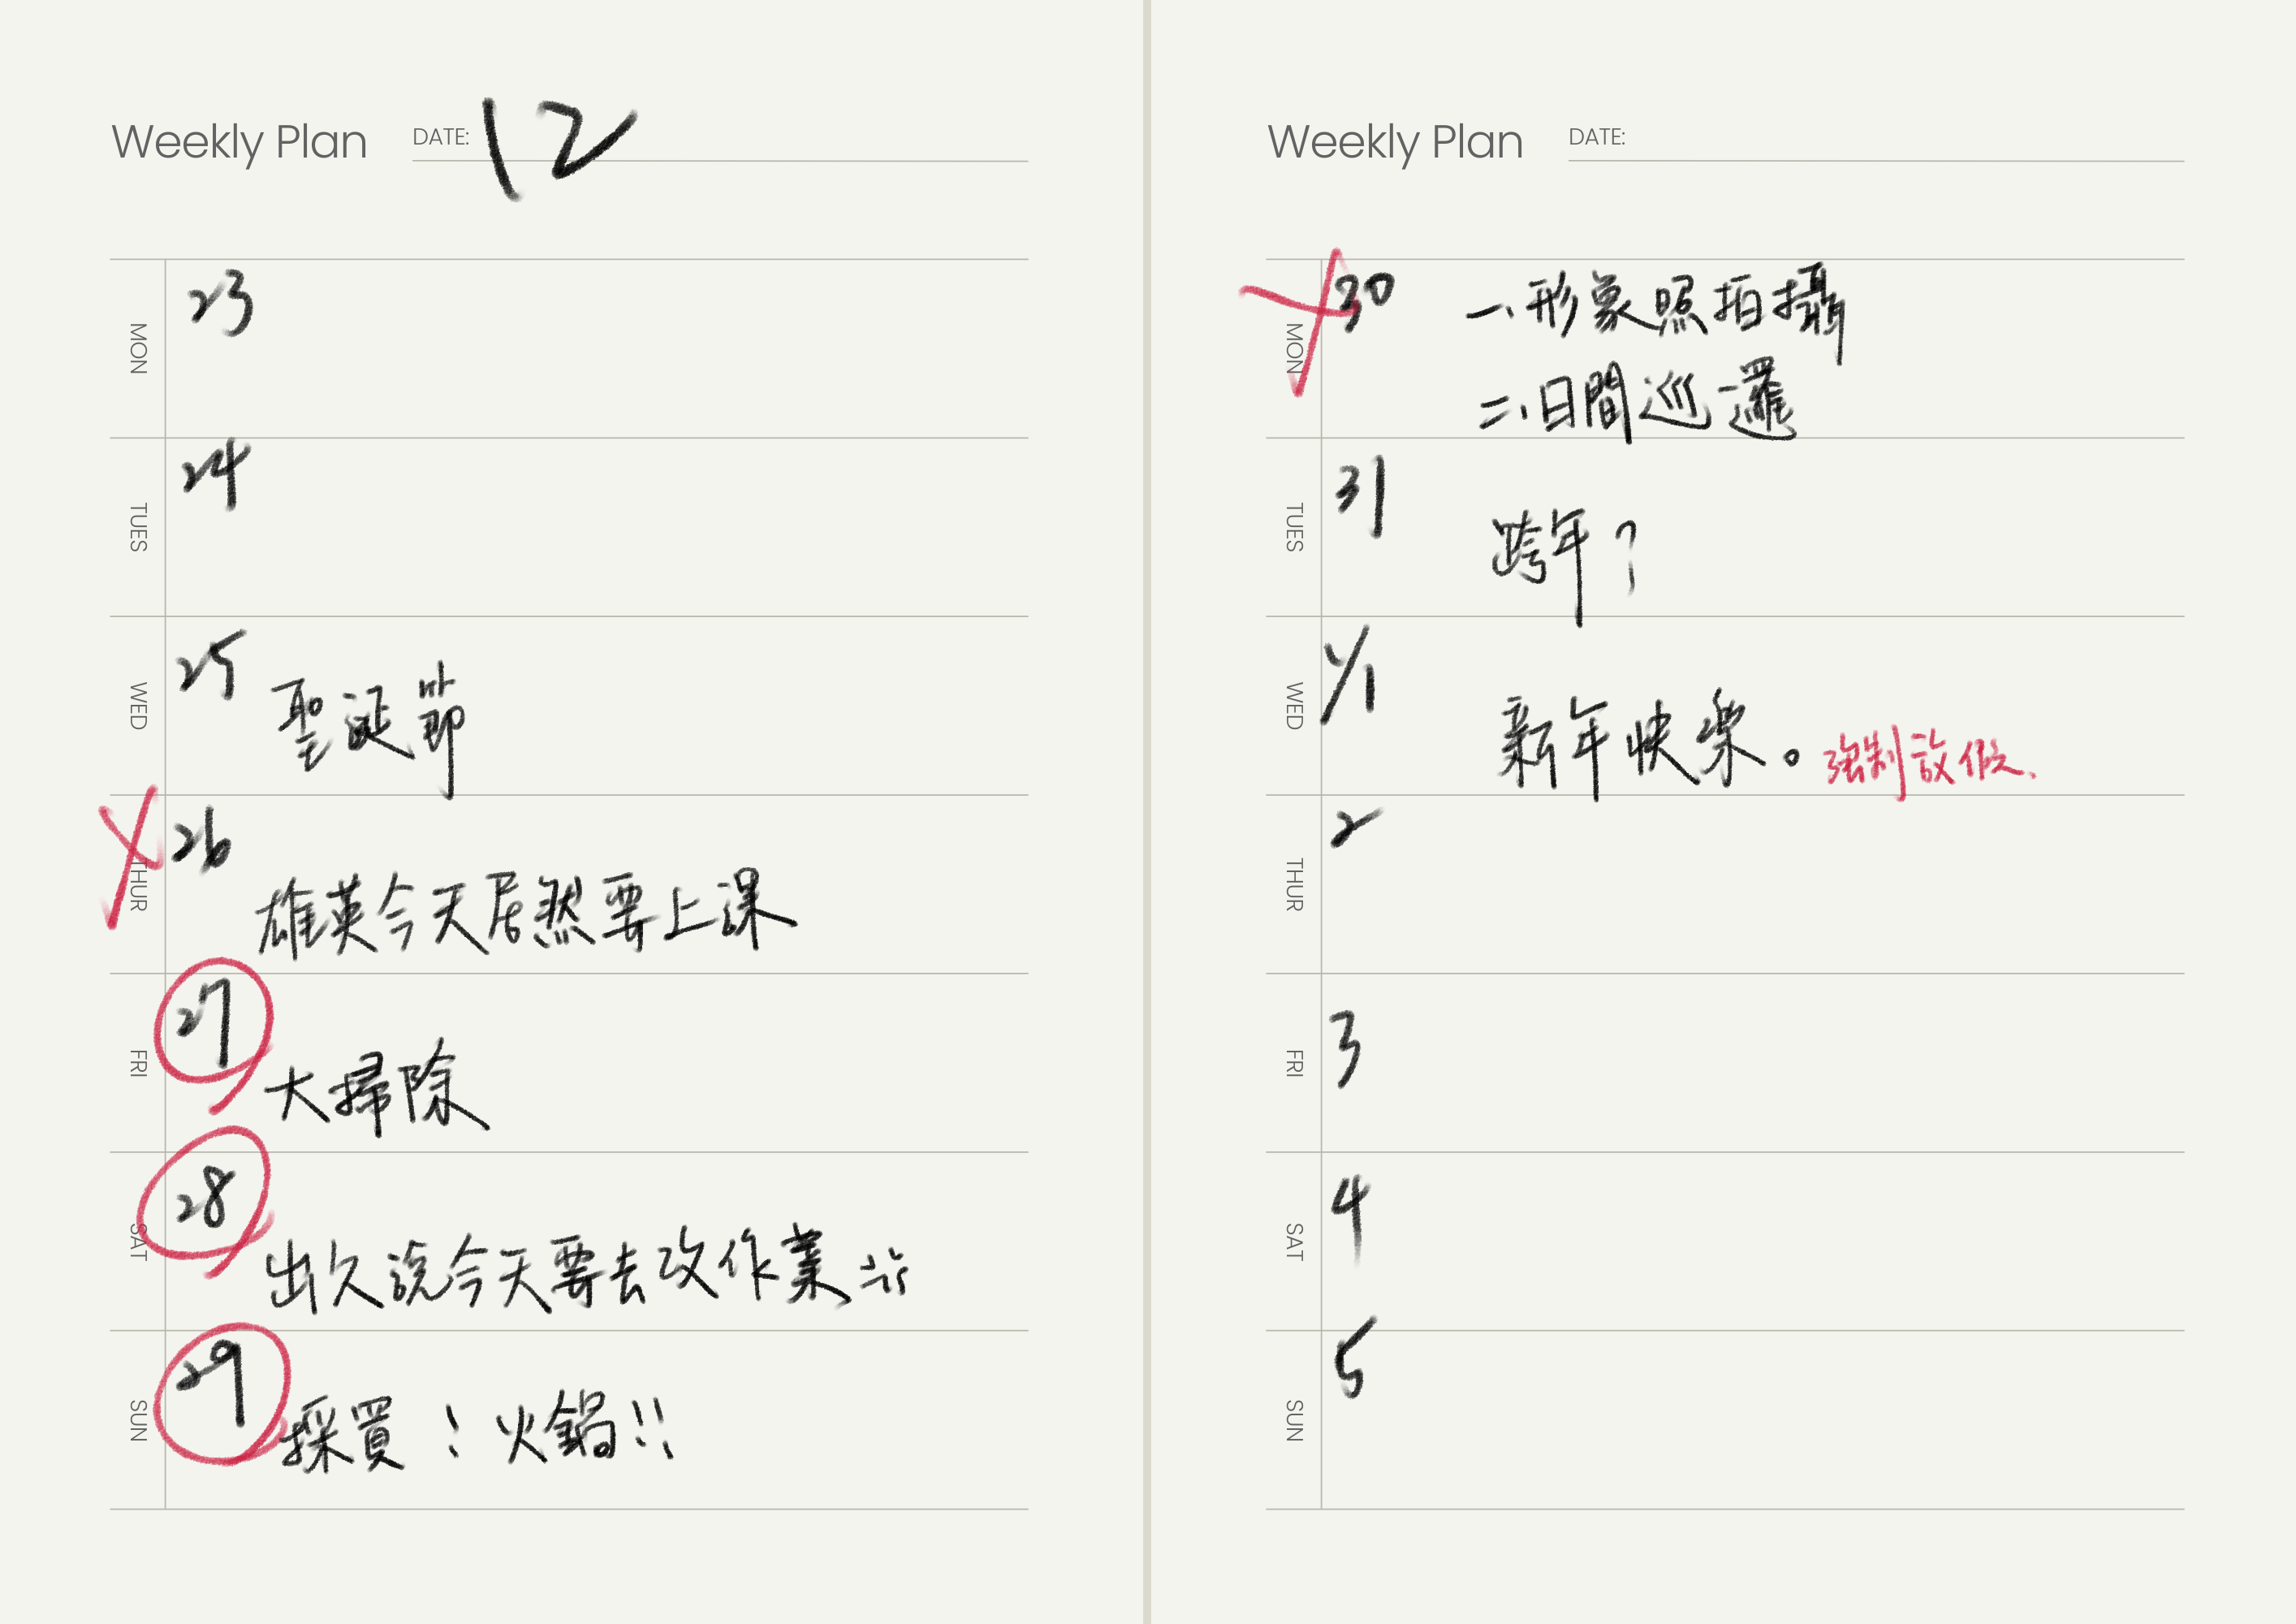 Weekly Plan DATE: 12
MON 23
TUES 24
WED 25 聖誕節
THUR 26 雄英今天居然要上課
FRI 27 大掃除
SAT 28 出久說今天要去改作業
SUN 29 採買！火鍋!!
Weekly Plan DATE:
MON 30 一、形象照拍攝
二、日間巡邏
TUES 31 跨年？
WED 1/1 新年快樂。強制放假、
THUR 2
FRI 3
SAT 4
SUN 5